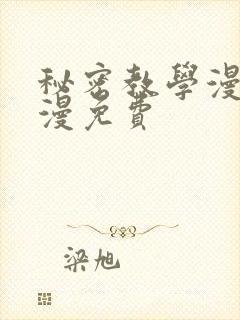 秘密教學漫
漫免費
梁旭